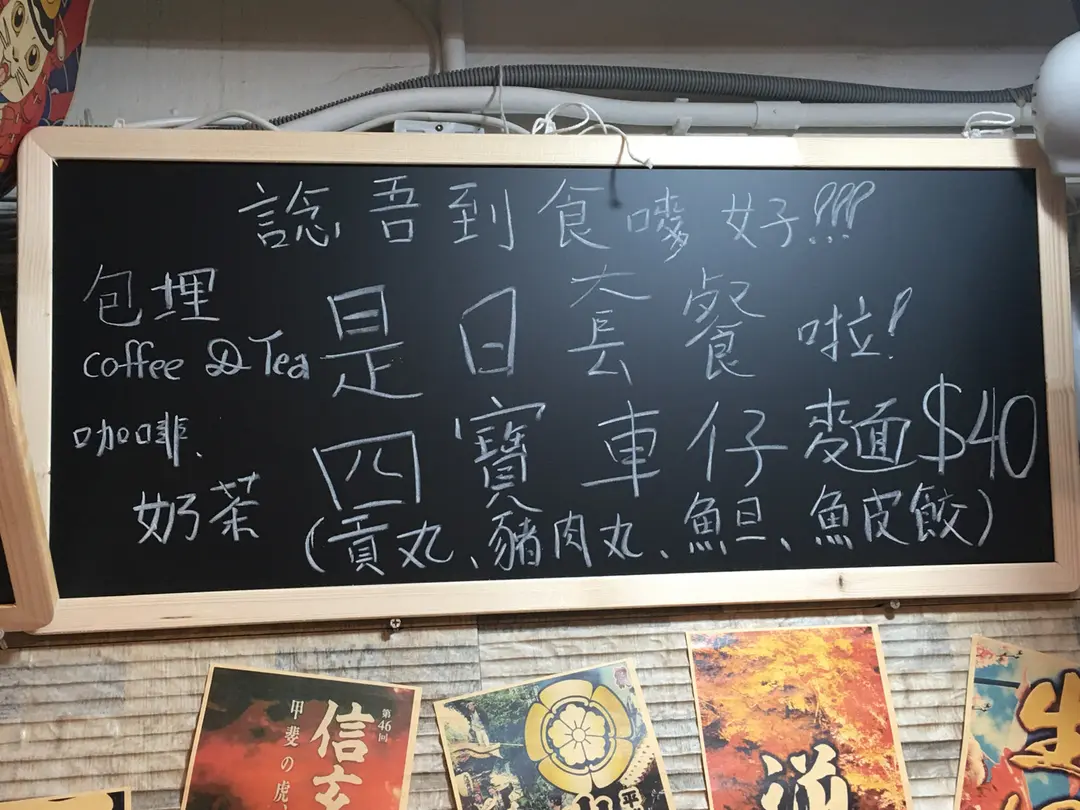 諗吾到食嘜好!!!
包埋
coffee & Tea
咖啡、
奶茶
是日套餐啦!
四寶車仔麵$40
(貢丸、豬肉丸、魚旦、魚皮餃)
第46回
信玄
甲斐の虎
平